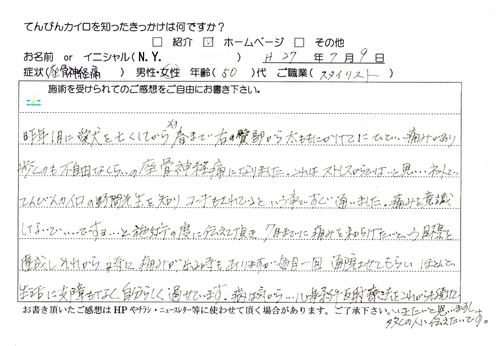 てんびんカイロを知ったきっかけは何ですか?
□ 紹介 ☑ ホームページ □ その他
お名前 or イニシャル(N.Y. ) H 27 年 7 月 9 日
症状(座骨神経痛 ) 男性・女性 年齢(50)代 ご職業(スタイリスト )
施術を受けられてのご感想をご自由にお書き下さい。
昨年1月に愛犬を亡くしてから 春まで右の臀部から太ももにかけて 痛みがあり
歩くのも不自由なくらいの座骨神経痛になりました。これはストレスからでは…と思い、ネットで
てんびんカイロの 先生を知り という事ですぐ通いました。痛みを意識
しないで…ですョ…と施術の度に伝えて頂き 7月までに痛みを和らげたいという目標を
達成し それから 時に痛みが出る時もありますが 毎月一回 させてもらい ほとんど
生活に支障もなく自分らしく過せています。病は気から… 条件反射療法をこれからも続けて
いきたいと思いますし
お書き頂いたご感想はHPやチラシ・ニュースレター等に使わせて頂く場合があります。ご了承下さい。
多くの人に伝えたいです。